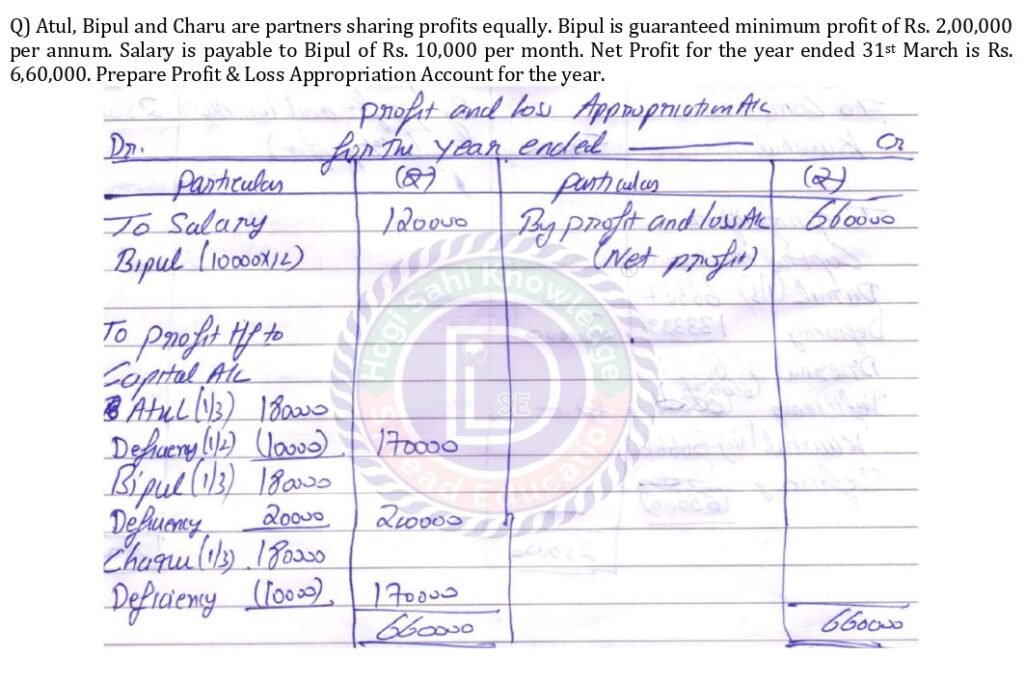 Q) Atul, Bipul and Charu are partners sharing profits equally. Bipul is guaranteed minimum profit of Rs. 2,00,000
per annum. Salary is payable to Bipul of Rs. 10,000 per month. Net Profit for the year ended 31st March is Rs.
6,60,000. Prepare Profit & Loss Appropriation Account for the year.
Profit and loss Appropriation A/c
Dr. for The Year ended Cr
Particulars (₹) particulars (₹)
To Salary 120000 By profit and loss A/c 660000
Bipul (10000x12) (Net profit)
To profit t/f to
Capital A/c
Atul (1/3) 180000
Deficiency (1/2) (10000) 170000
Bipul (1/3) 180000
Deficiency 20000 200000
Charu (1/3) 180000
Deficiency (10000) 170000
660000 660000
Hogi Sahi Knowledge
SE
Education